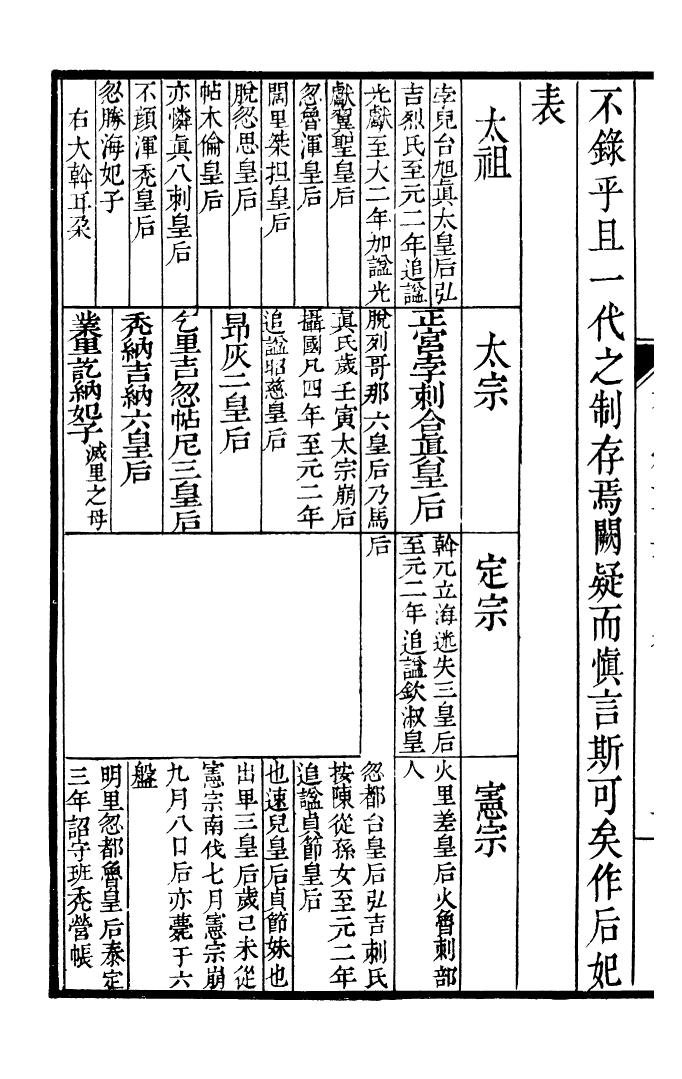 不錄乎且一代之制存焉闕疑而愼言斯可矣作后妃
表
太祖
孛兒台旭眞太皇后弘
吉烈氏至元二年追諡
光獻至大二年加諡光
獻翼聖皇后
忽魯渾皇后
闊里桀担皇后
脫忽思皇后
帖木倫皇后
亦憐眞八剌皇后
不顏渾禿皇后
忽勝海妃子
右大斡耳朶
太宗
正宮孛剌合眞皇后
脫列哥那六皇后乃馬
眞氏歲壬寅太宗崩后
攝國凡四年至元二年
追諡昭慈皇后
昻灰二皇后
乞里吉忽帖尼三皇后
禿納吉納六皇后
業里訖納妃子滅里之母
定宗
斡兀立海迷失三皇后
至元二年追諡欽淑皇
后
憲宗
火里差皇后火魯剌部
人
忽都台皇后弘吉剌氏
按陳從孫女至元二年
追諡貞節皇后
也速兒皇后貞節妹也
出卑三皇后歲己未從
憲宗南伐七月憲宗崩
九月八日后亦薨于六
盤
明里忽都魯皇后泰定
三年詔守班禿營帳